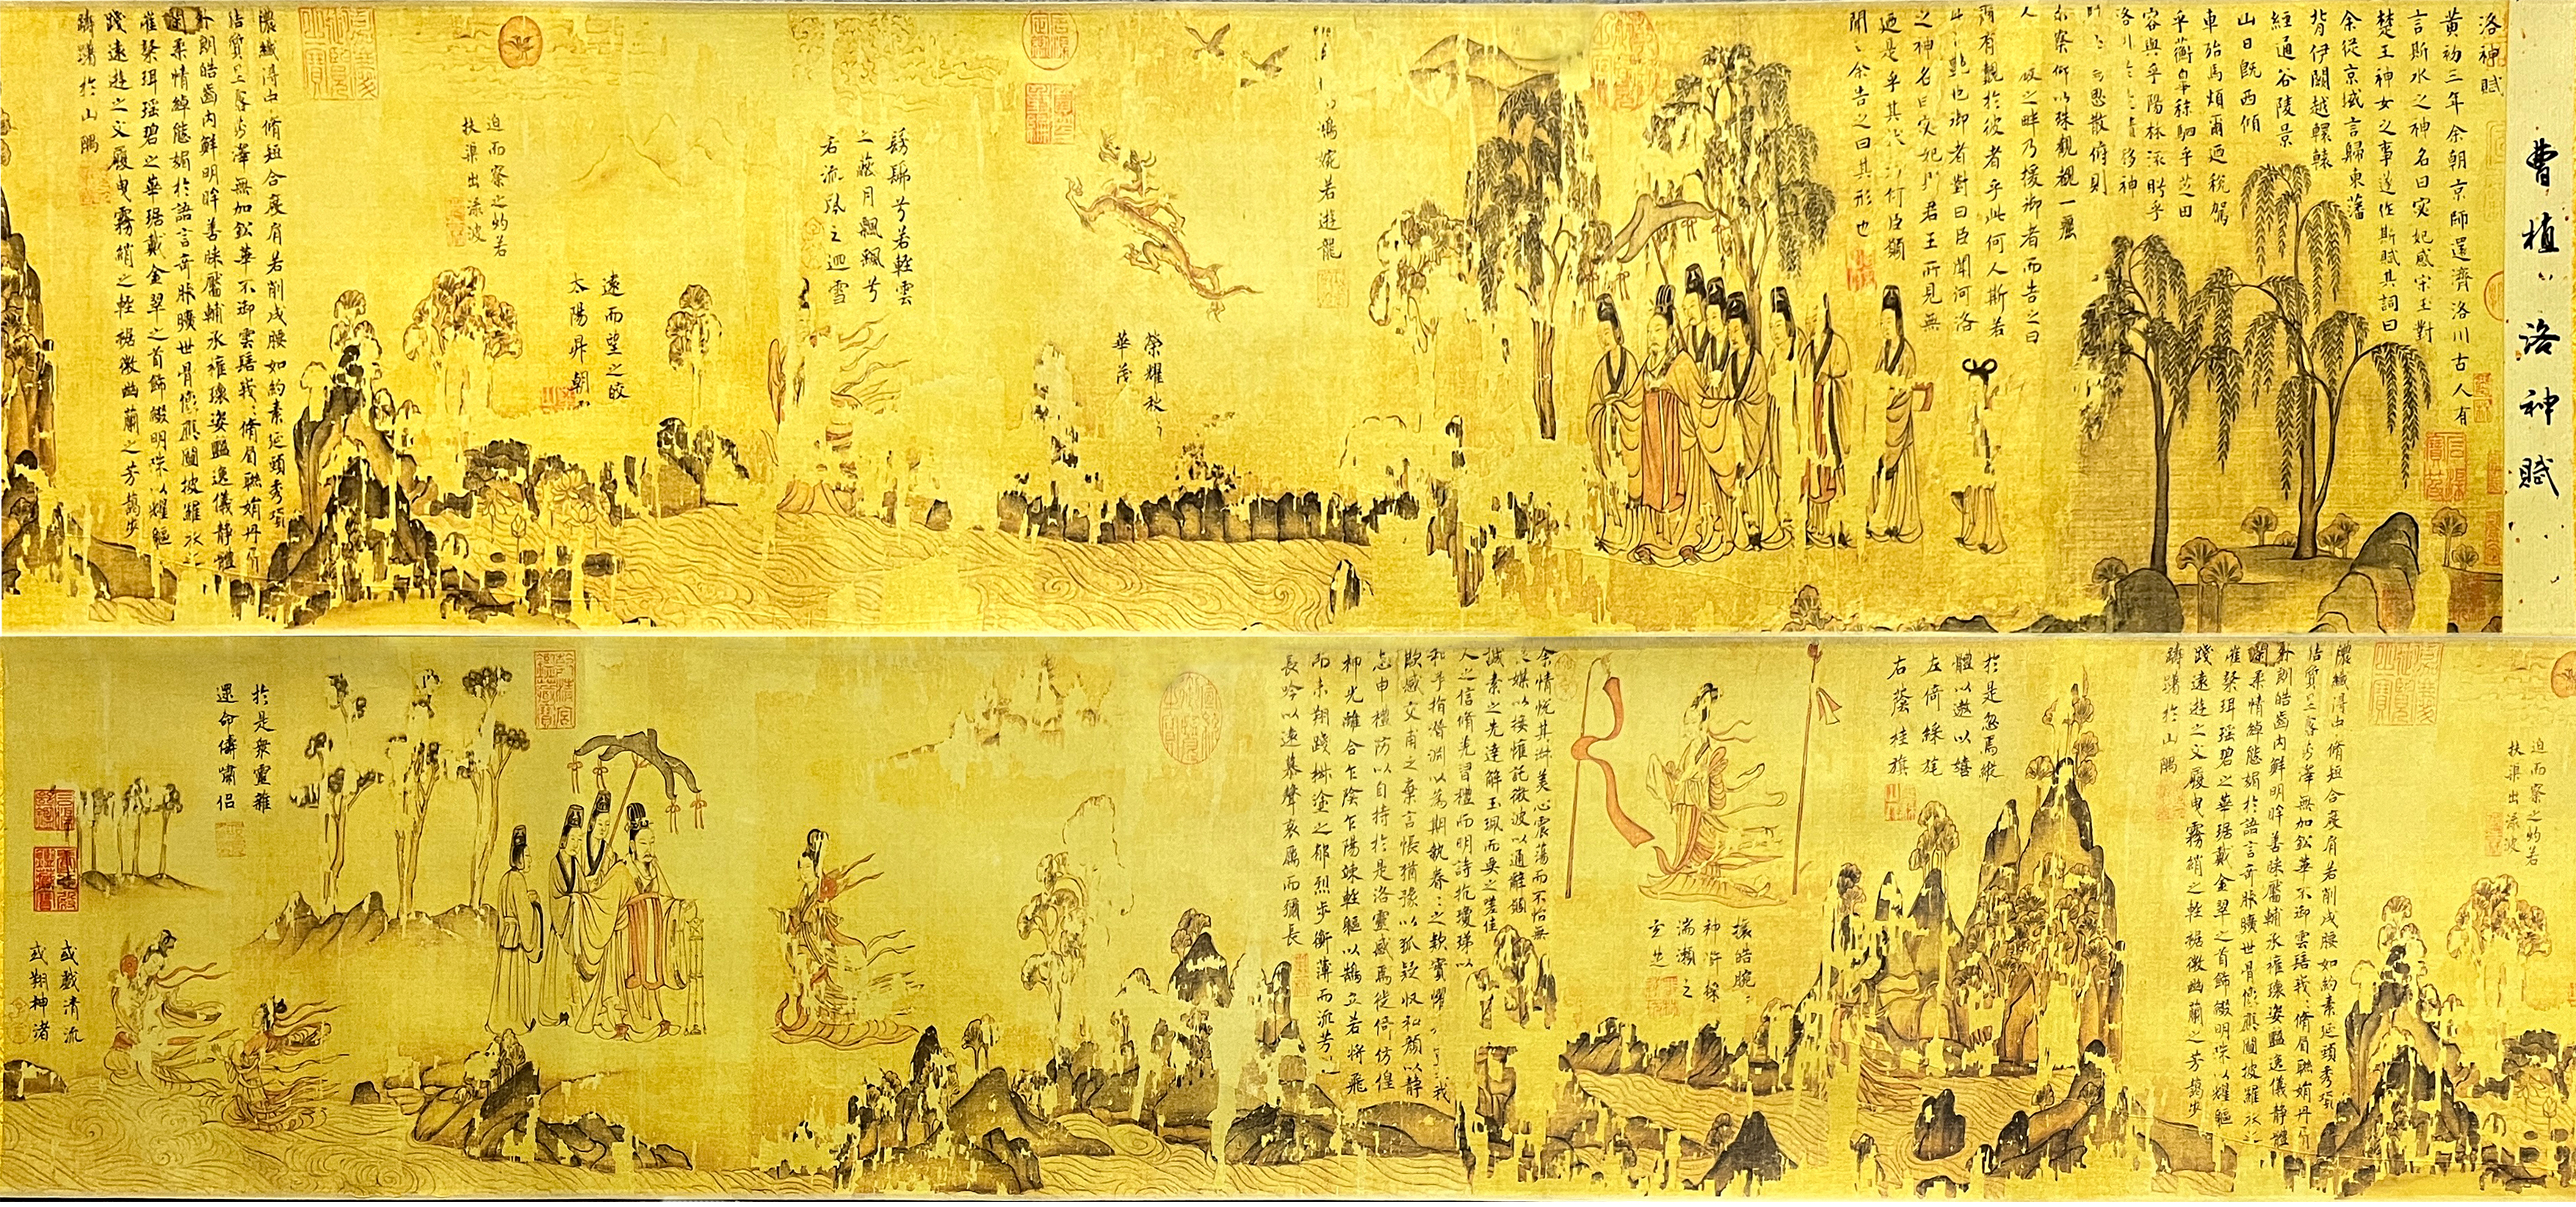 曹植〻洛神賦
洛神賦
黄初三年余朝京師還濟洛川古人有
言斯水之神名曰宓妃感宋玉對
楚王神女之事遂作斯賦其詞曰
余從京域言歸東藩
背伊闕越轘轅
經通谷陵景
山日既西傾
車殆馬煩爾迺税駕
乎蘅皋秣駟乎芝田
容與乎陽林流眄乎
洛川於精移神
思散俯則
未察仰以殊觀覩一麗
人之畔乃援御者而告之曰
爾有覿於彼者乎此何人斯若
此艷也御者對曰臣聞河洛
之神名曰宓妃君王所見無
迺是乎其狀何臣願
聞之余告之曰其形也
鴻婉若遊龍
榮耀秋
華茂
髣髴兮若輕雲
之蔽月飄颻兮
若流風之迴雪
遠而望之皎
太陽昇朝
迫而察之灼若
扶渠出淥波
穠纖得中脩短合度肩若削成腰如約素延頸秀項
皓質呈露芳澤無加鉛華不御雲髻峩〻脩眉聯娟丹脣
外朗皓齒内鮮明眸善睞靨輔承權瓌姿豔逸儀静體
閑柔情綽態媚於語言奇服曠世骨像應圖披羅衣之
璀粲珥瑶碧之華琚戴金翠之首飾綴明珠以耀軀
踐遠遊之文履曳霧綃之輕裾微幽蘭之芳藹步
躊躇於山隅
迫而察之灼若
扶渠出淥波
穠纖得中脩短合度肩若削成腰如約素延頸秀項
皓質呈露芳澤無加鉛華不御雲髻峩〻脩眉聯娟丹脣
外朗皓齒内鮮明眸善睞靨輔承權瓌姿豔逸儀静體
閑柔情綽態媚於語言奇服曠世骨像應圖披羅衣之
璀粲珥瑶碧之華琚戴金翠之首飾綴明珠以耀軀
踐遠遊之文履曳霧綃之輕裾微幽蘭之芳藹步
躊躇於山隅
於是忽焉縱
體以遨以嬉
左倚綵旄
右蔭桂旗
攘皓腕
神滸採
湍瀨之
玄芝
余情悦其淑美心震蕩而不怡無
良媒以接懽託微波以通辭願
誠素之先達解玉珮而要之嗟佳
人之信脩羌習禮而明詩抗瓊珶以
和予指潛淵以為期執眷〻之欵實懼我
欺感交甫之棄言悵猶豫以狐疑收和顔以静
志申禮防以自持於是洛靈感焉徙倚仿偟
神光離合乍陰乍陽竦輕軀以鶴立若將飛
而未翔踐椒塗之郁烈步蘅薄而流芳
長吟以遠慕聲哀厲而彌長
於是衆靈雜
遝命儔嘯侣
或戲清流
或翔神渚